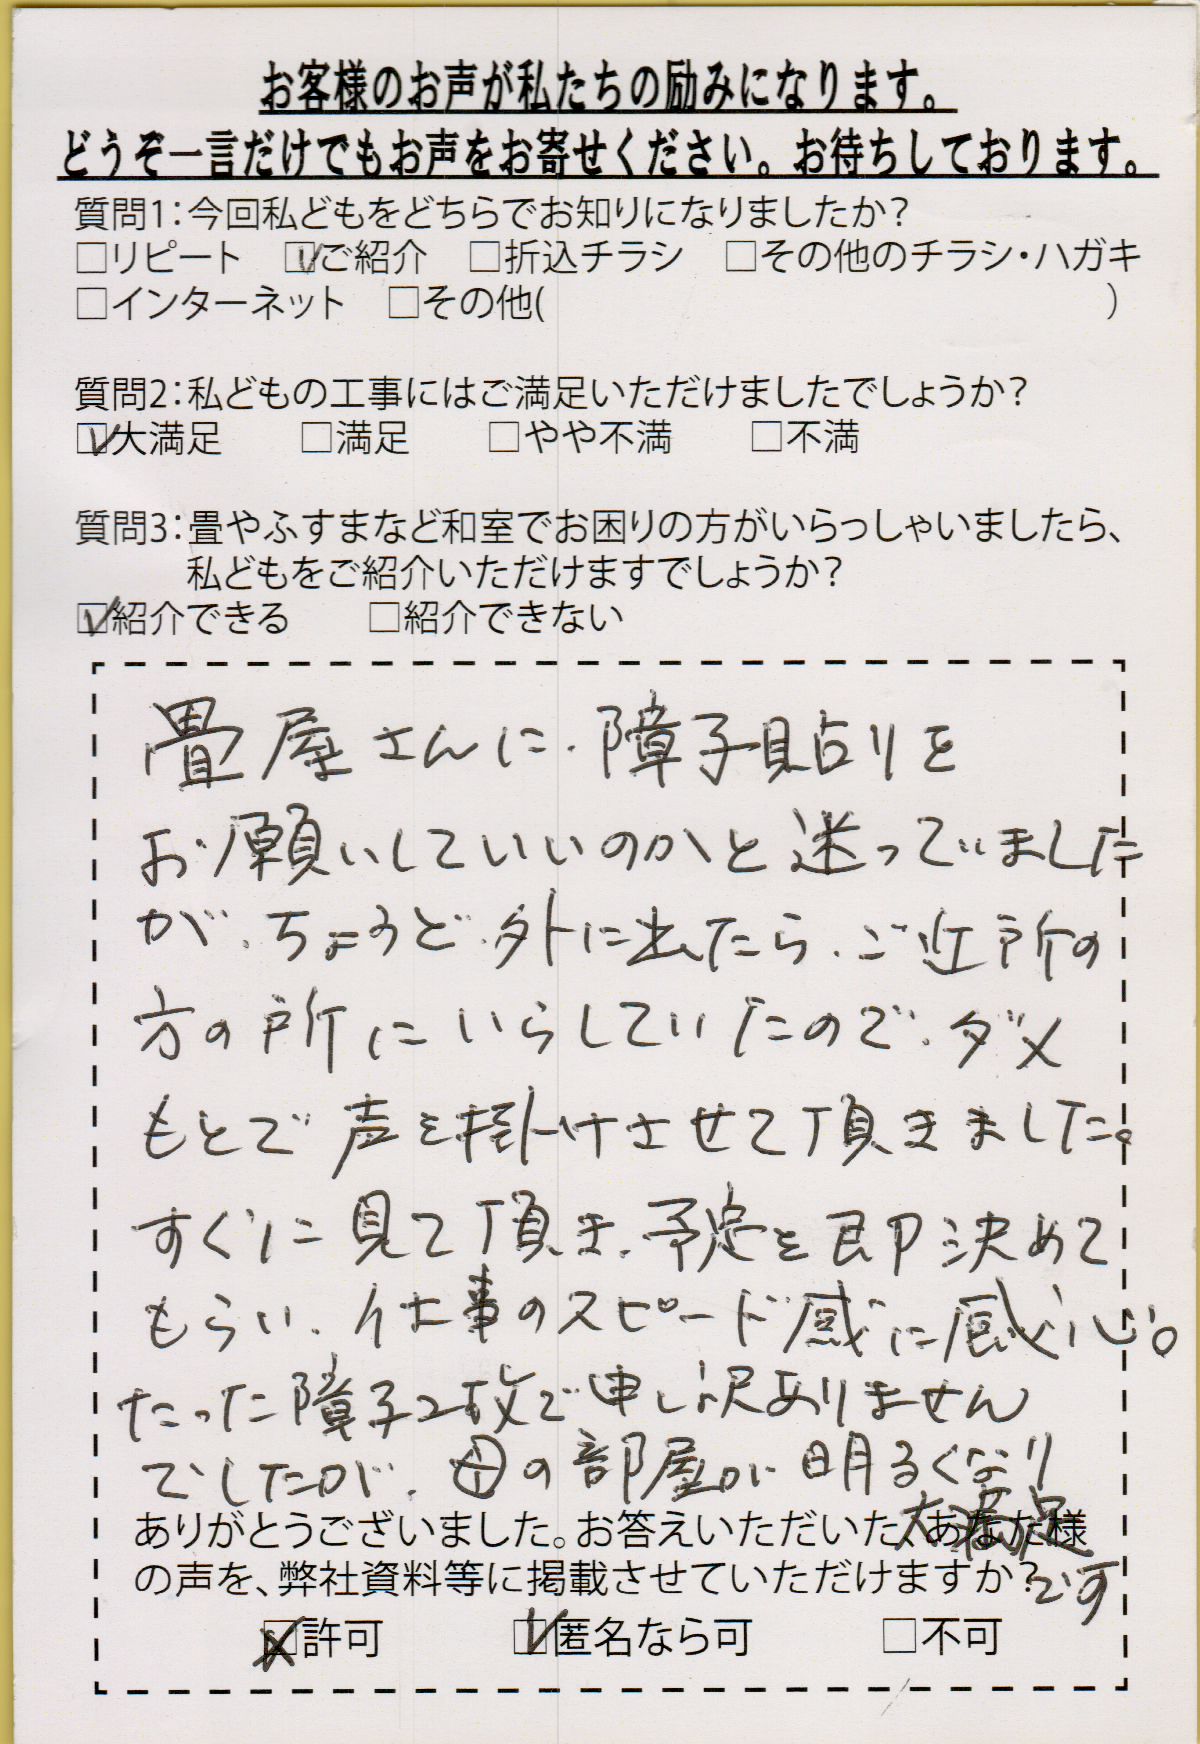 お客様のお声が私たちの励みになります。
どうぞ一言だけでもお声をお寄せください。お待ちしております。
質問1：今回私どもをどちらでお知りになりましたか？
□リピート ☑ご紹介 □折込チラシ □その他のチラシ・ハガキ
□インターネット □その他( )
質問2：私どもの工事にはご満足いただけましたでしょうか？
☑大満足 □満足 □やや不満 □不満
質問3：畳やふすまなど和室でお困りの方がいらっしゃいましたら、
私どもをご紹介いただけますでしょうか？
☑紹介できる □紹介できない
畳屋さんに、障子貼りを
お願いしていいのかと迷っていました
が、ちょうど、外に出たら、ご近所の
方の所にいらしていたので、ダメ
もとで声を掛けさせて頂きました。
すぐに見て頂き、予定を即決めて
もらい、仕事のスピード感に感心。
たった障子2枚で申し訳ありません
でしたが、母の部屋が明るくなり
大満足
です
ありがとうございました。お答えいただいた、あなた様
の声を、弊社資料等に掲載させていただけますか？
☒許可 ☑匿名なら可 □不可